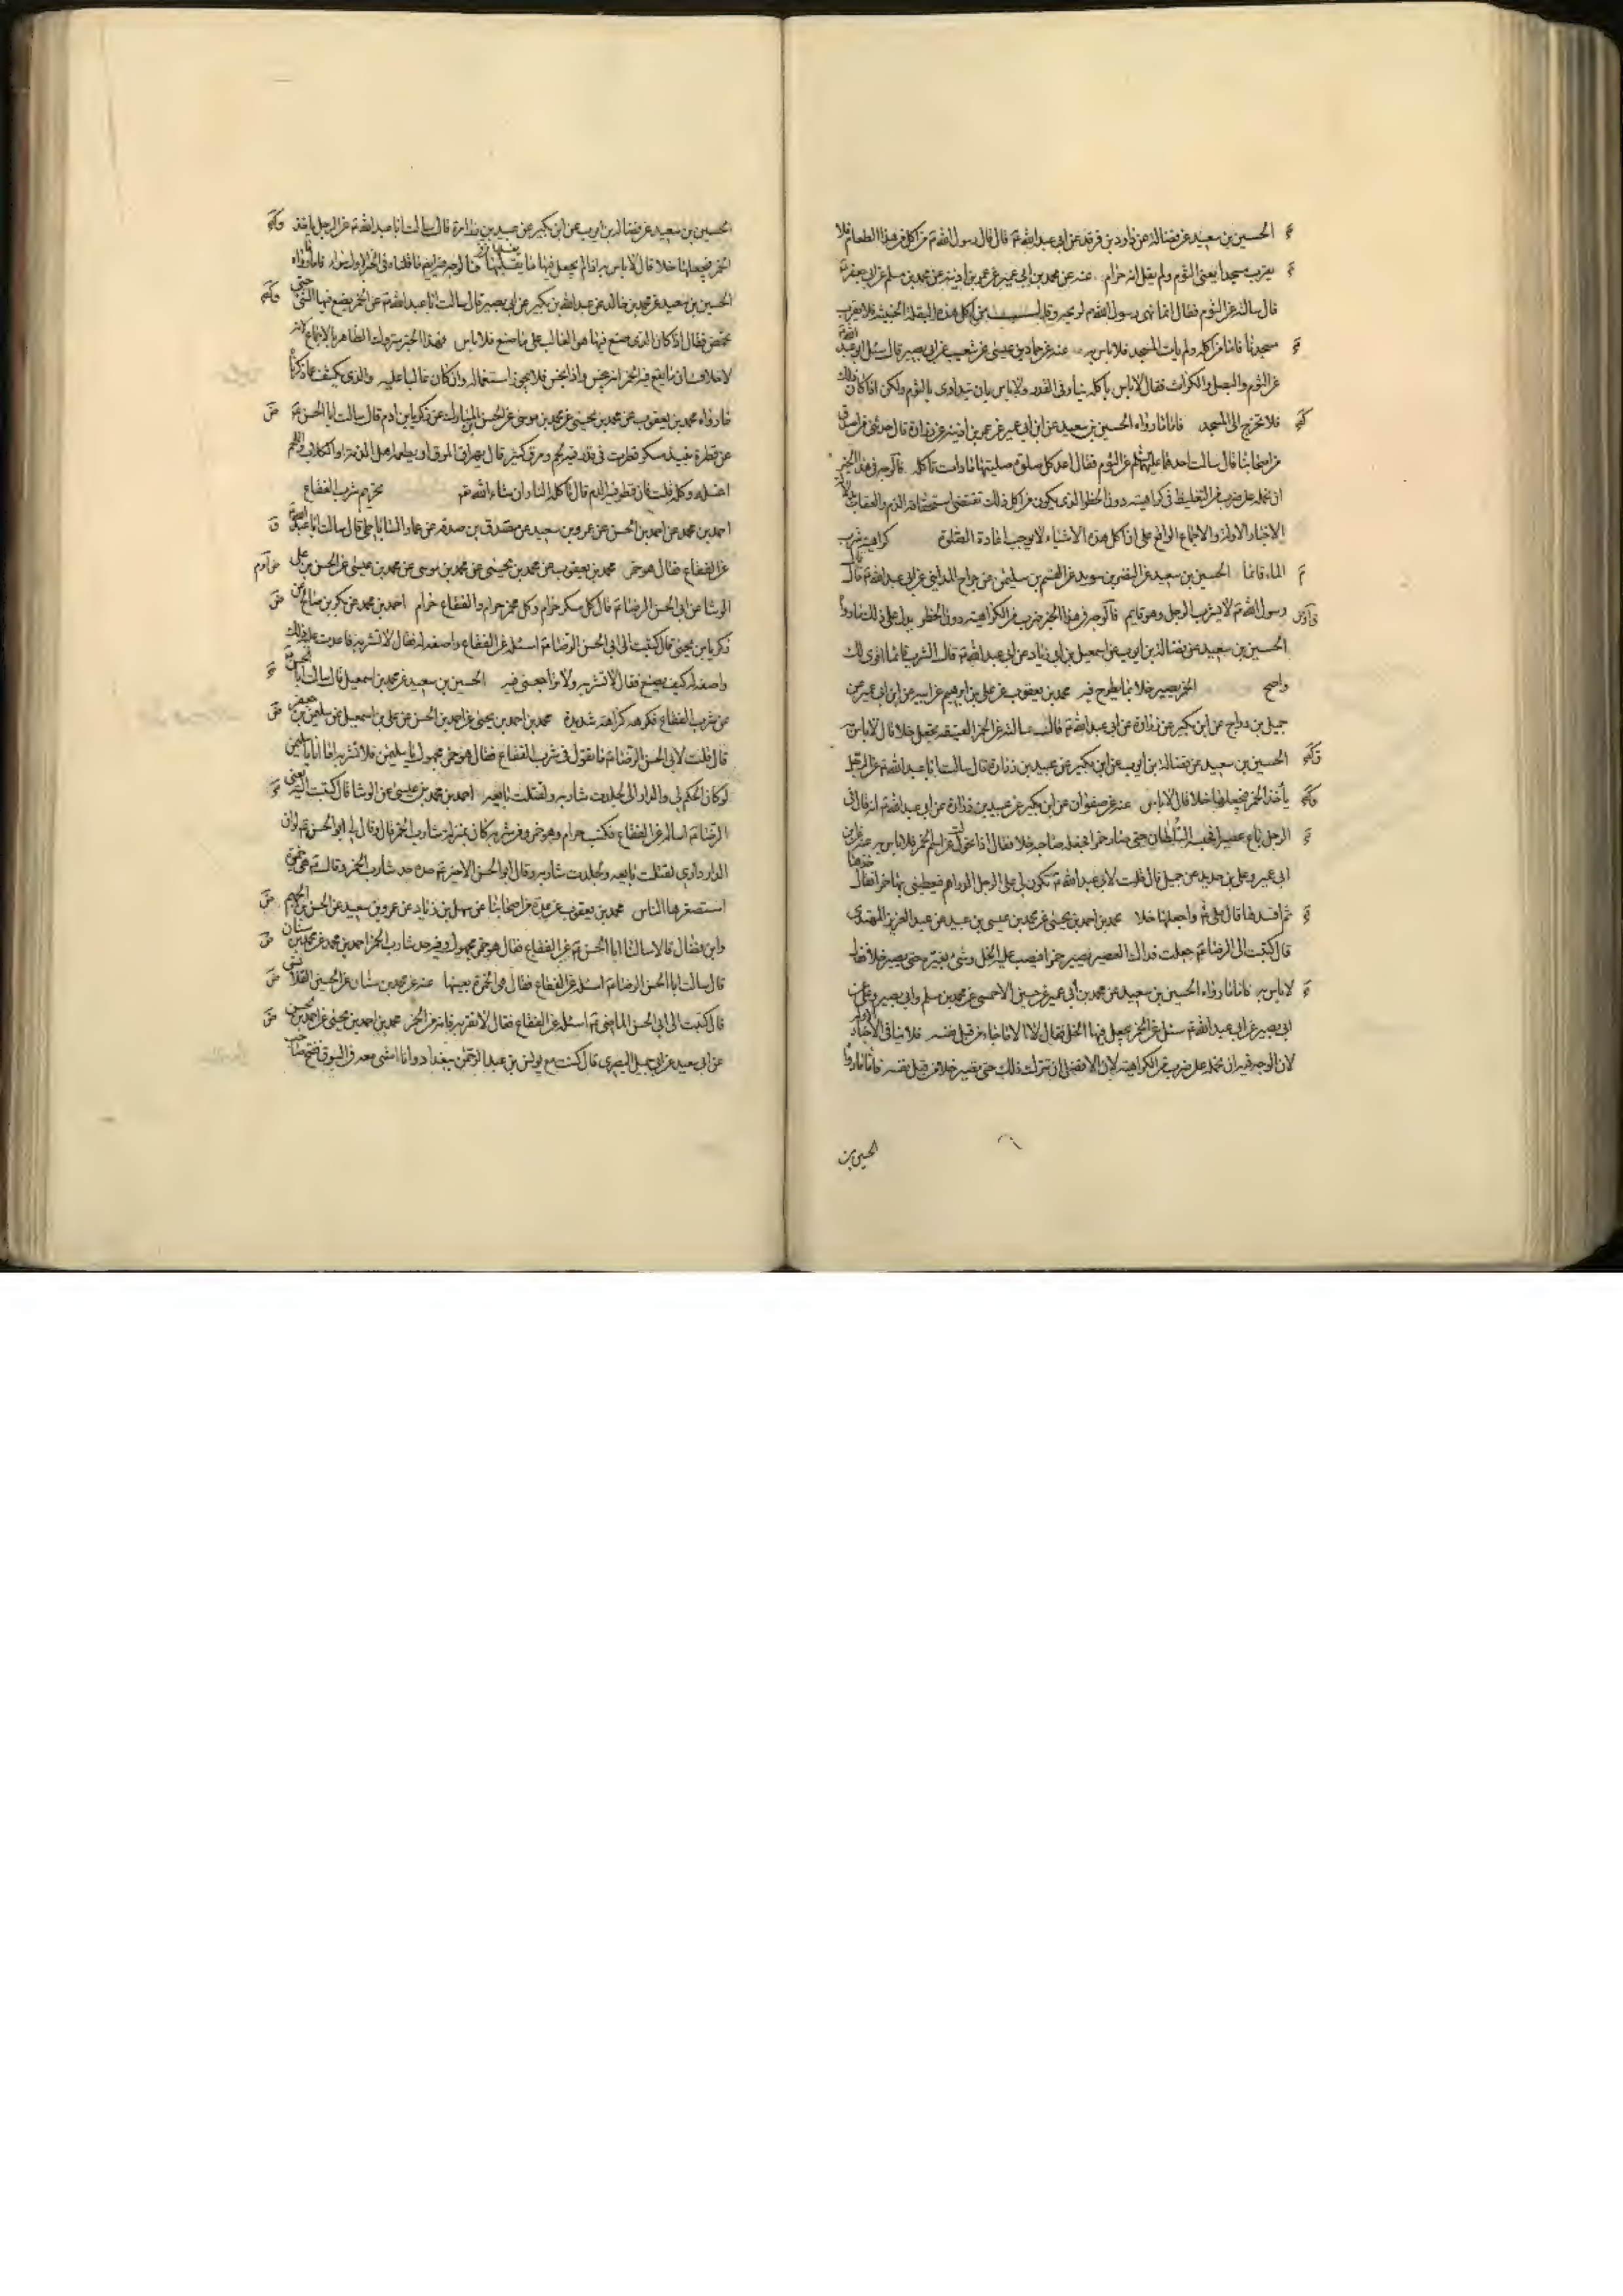 الحسين بن سعيد عن فضالة عن داود بن فرقد عن ابى عبد الله ع قال قال رسول الله ص من اكل من هذا الطعام فلا
يقرب مسجدنا يعنى الثوم ولم يقل انه حرام عنه عن محمد بن ابى عمير عن عمر بن اذينة عن محمد بن مسلم عن ابى جعفر ع
قال سالته عن الثوم فقال انما نهى رسول الله ص لريحه وقال من اكل هذه البقلة الخبيثة فلا يقرب
مسجدنا فاما من اكله ولم يات المسجد فلا باس به عنه عن حماد بن عيسى عن شعيب عن ابى بصير قال سئل ابو عبد الله ع
عن الثوم والبصل والكراث فقال لا باس باكله نيا وفى القدر ولا باس بان يتداوى بالثوم ولكن اذا كان ذلك
فلا تخرج الى المسجد فاما ما رواه الحسين بن سعيد عن ابن ابى عمير عن عمر بن اذينة عن زرارة قال حدثنى من اصدق
من اصحابنا قال سالت احدهما عليهما السلم عن الثوم فقال اعد كل صلوة صليتها ما دمت تاكله فالوجه فى هذا الخبر
ان نحمله على ضرب من التغليظ فى كراهيته دون الحظر الذى يكون من اكل ذلك يقتضى استحقاقه الذم والعقاب
الاخبار الاولة والاجماع الواقع على ان اكل هذه الاشياء لا يوجب اعادة الصلوة كراهية شرب
الماء قائما الحسين بن سعيد عن النضر بن سويد عن القسم بن سليمن عن جراح المداينى عن ابى عبد الله ع قال قال
رسول الله ص لا يشرب الرجل وهو قايم فالوجه فى هذا الخبر ضرب من الكراهية دون الحظر يدل على ذلك ما رواه
الحسين بن سعيد عن فضالة بن ايوب عن اسمعيل بن ابى زياد عن ابى عبد الله ع قال الشرب قائما اقوى لك
واصح الخمر يصير خلا بما يطرح فيه محمد بن يعقوب عن على بن ابرهيم عن ابيه عن ابن ابى عمير عن
جميل بن دراج عن ابن بكير عن زرارة عن ابى عبد الله ع قال سالته عن الخمر العتيقة يجعل خلا قال لا باس
الحسين بن سعيد عن فضالة بن ايوب عن ابن بكير عن عبيد بن زرارة قال سالت ابا عبد الله ع عن الرجل
ياخذ الخمر فيجعلها خلا قال لا باس عنه عن صفوان عن ابن بكير عن عبيد بن زرارة عن ابى عبد الله ع انه قال فى
الرجل باع عصيرا فحبسه السلطان حتى صار خمرا فجعله صاحبه خلا فقال اذا تحول عن اسم الخمر فلا باس به عنه عن ابن
ابى عمير وعلى بن حديد عن جميل قال قلت لابى عبد الله ع يكون لى على الرجل الدراهم فيعطينى بها خمرا فقال خذها
ثم افسدها قال على ثم واجعلها خلا محمد بن احمد بن يحيى عن محمد بن عيسى بن عبيد عن عبد العزيز المهتدى
قال كتبت الى الرضا ع جعلت فداك العصير يصير خمرا فيصب عليه الخل وشى يغيره حتى يصير خلا فقال
لا باس به فاما ما رواه الحسين بن سعيد عن محمد بن ابى عمير عن حسين الاحمسى عن محمد بن مسلم وابى بصير وعلى عن
ابى بصير عن ابى عبد الله ع سئل عن الخمر يجعل فيها الخل فقال لا الا ما جاء من قبل نفسه فلا ينافى الاخبار الاولة
لان الوجه فيه ان نحمله على ضرب من الكراهية لان الافضل ان يترك ذلك حتى يصير خلا من قبل نفسه فاما ما رواه
الحسين بن
الحسين بن سعيد عن فضالة بن ايوب عن ابن بكير عن عبيد بن زرارة قال سالت ابا عبد الله ع عن الرجل ياخذ
الخمر فيجعلها خلا قال لا باس به اذا لم يجعل فيها ما يغلبها فالوجه فيه ايضا ما قلناه فى الخبر الاول سواء فاما ما رواه
الحسين بن سعيد عن محمد بن خالد عن عبد الله بن بكير عن ابى بصير قال سالت ابا عبد الله ع عن الخمر يصنع فيها الشى حتى
تحمض فقال اذا كان الذى صنع فيها هو الغالب على ما صنع فلا باس فهذا الخبر متروك الظاهر بالاجماع لانه
لا خلاف ان ما يقع فيه الخمر انه ينجس واذا نجس فلا يجوز استعماله وان كان غالبا عليه والذى يكشف عما ذكرنا
ما رواه محمد بن يعقوب عن محمد بن يحيى عن محمد بن موسى عن الحسن المبارك عن زكريا بن ادم قال سالت ابا الحسن ع
عن قطرة نبيذ مسكر قطرت فى قدر فيه لحم ومرق كثير قال يهراق المرق او يطعمه اهل الذمة او الكلاب واللحم
اغسله وكله قلت فان قطر فيه الدم قال تاكله النار ان شاء الله تع تحريم شرب الفقاع
احمد بن محمد عن احمد بن الحسن عن عمرو بن سعيد عن مصدق بن صدقة عن عمار الساباطى قال سالت ابا عبد الله ع
عن الفقاع فقال هو خمر محمد بن يعقوب عن محمد بن يحيى عن محمد بن موسى عن محمد بن عيسى عن الحسن بن على
الوشا عن ابى الحسن الرضا ع قال كل مسكر حرام وكل مخمر حرام والفقاع حرام احمد بن محمد عن بكر بن صالح عن
زكريا بن يحيى قال كتبت الى ابى الحسن الرضا ع اسئله عن الفقاع واصفه له فقال لا تشربه فاعدت عليه ذلك
واصفه له كيف يصنع فقال لا تشربه ولا تراجعنى فيه الحسين بن سعيد عن محمد بن اسمعيل قال سالت ابا الحسن ع
عن شرب الفقاع فكرهه كراهة شديدة محمد بن احمد بن يحيى عن احمد بن الحسن عن على بن اسمعيل عن سليمن بن جعفر
قال قلت لابى الحسن الرضا ع ما تقول فى شرب الفقاع فقال هو خمر مجهول يا سليمن فلا تشربه اما انا يا سليمن
لو كان الحكم لى والدار لى لجلدت شاربه ولقتلت بايعه احمد بن محمد بن عيسى عن الوشا قال كتبت اليه يعنى
الرضا ع اساله عن الفقاع فكتب حرام وهو خمر ومن شربه كان بمنزلة شارب الخمر قال وقال لى ابو الحسن ع لو ان
الدار دارى لقتلت بايعه ولجلدت شاربه وقال ابو الحسن الاخير ع حده حد شارب الخمر وقال ع هى خمرة
استصغرها الناس محمد بن يعقوب عن عدة من اصحابنا عن سهل بن زياد عن عمرو بن سعيد عن الحسن بن الجهم
وابن فضال قالا سالنا ابا الحسن ع عن الفقاع فقال هو خمر مجهول وفيه حد شارب الخمر احمد بن محمد عن محمد بن سنان
قال سالت ابا الحسن الرضا ع اسئله عن الفقاع فقال هى الخمرة بعينها عنه عن محمد بن سنان عن الحسين القلانسى
قال كتبت الى ابى الحسن الماضى ع اسئله عن الفقاع فقال لا تقربه فانه من الخمر محمد بن احمد بن يحيى عن احمد بن الحسن
عن ابى سعيد عن ابى جميل البصرى قال كنت مع يونس بن عبد الرحمن ببغداد وانا امشى معه فى السوق ففتح صاحب